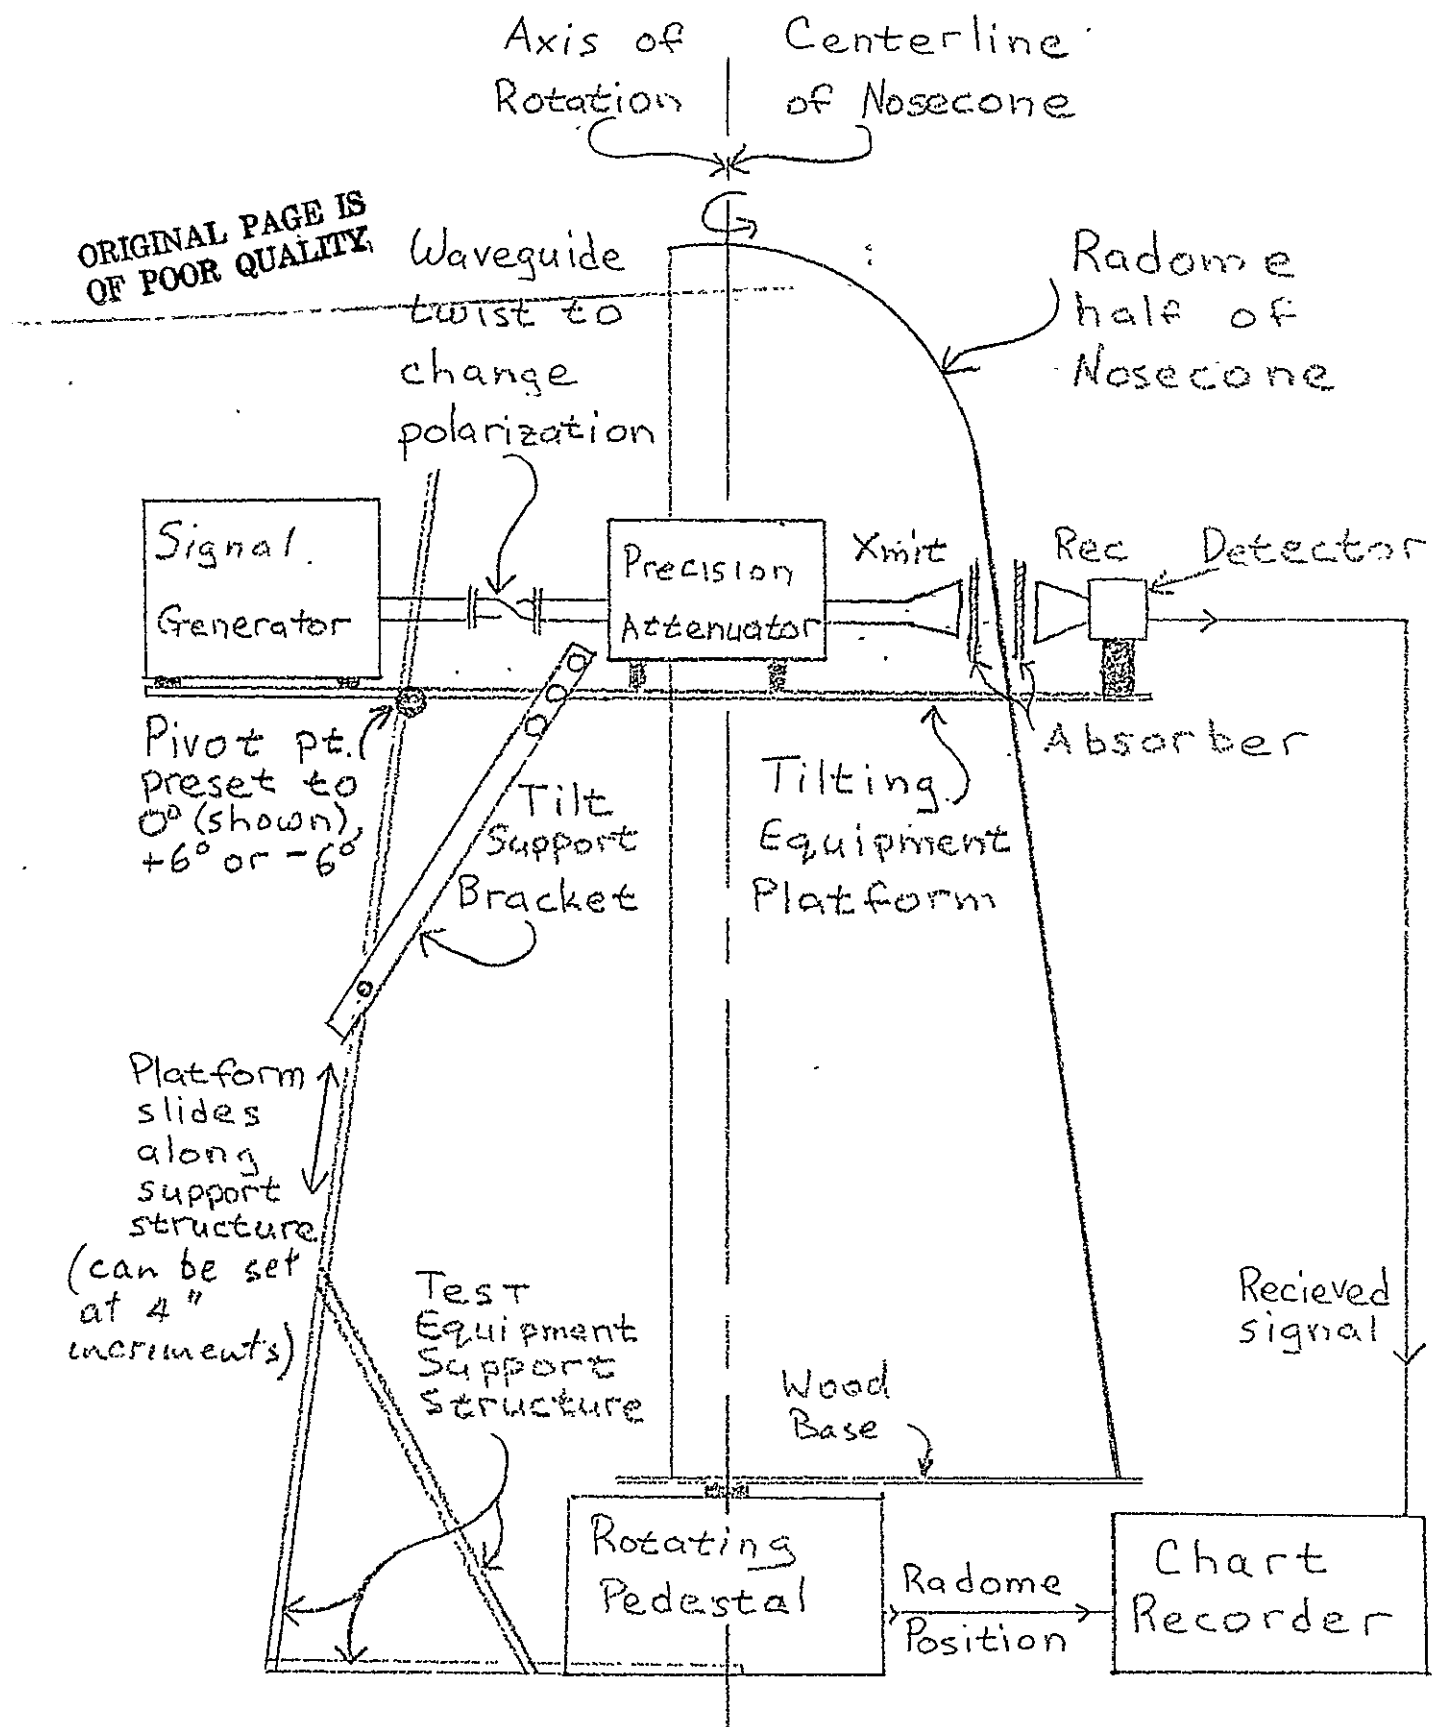 Axis of
Rotation
Centerline
of Nosecone
ORIGINAL PAGE IS
OF POOR QUALITY
Waveguide
twist to
change
polarization
Radome
half of
Nosecone
Signal
Generator
Precision
Attenuator
Xmit
Rec
Detector
Absorber
Pivot pt.
preset to
0° (shown),
+6° or -6°
Tilt
Support
Bracket
Tilting
Equipment
Platform
Platform
slides
along
support
structure
(can be set
at 4"
incriments)
Test
Equipment
Support
Structure
Wood
Base
Recieved
signal
Rotating
Pedestal
Radome
Position
Chart
Recorder